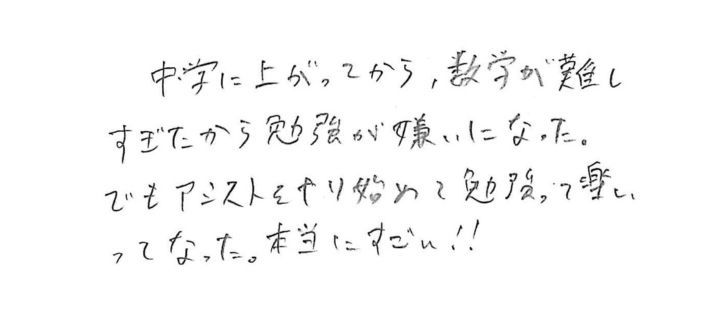 中学に上がってから，数学が難し
すぎたから勉強が嫌いになった。
でもアシストをやり始めて勉強って楽しい
ってなった。本当にすごい!!